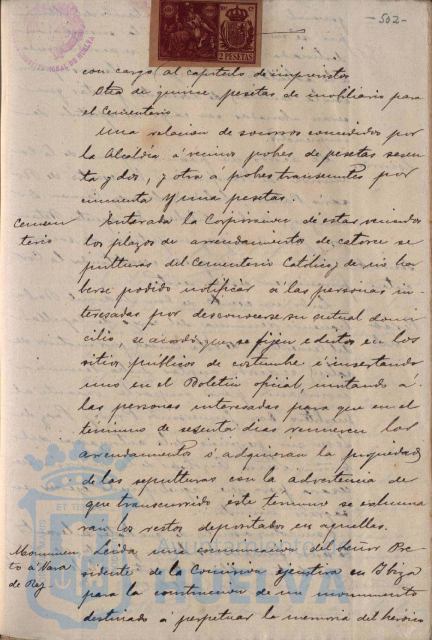 -502-
2 PESETAS
con cargo al capítulo de imprevistos
Otra de quince pesetas de mobiliario para
el Cementerio.
Una relacion de socorros concedidos por
la Alcaldía á vecinos pobres de pesetas sesen
ta y dos, y otra á pobres transeuntes por
cincuenta y una pesetas.
Cemen
terio
Enterada la Corporacion de estar vencidos
los plazos de arrendamientos de catorce se
pulturas del Cementerio Católico, de no ha
berse podido notificar á las personas in-
teresadas por desconocerse su actual domi
cilio, se acordó que se fijen edictos en los
sitios públicos de costumbre é insertando
uno en el Boletin oficial, invitando á
las personas interesadas para que en el
término de sesenta dias renueven los
arrendamientos ó adquieran la propiedad
de las sepulturas con la advertencia de
que transcurrido este termino se exhuma
ran los restos depositados en aquellas.
Monumen
to á Vara
de Rey
Leida una comunicacion del Señor Pre
sidente de la Comision ejecutiva en Ibiza
para la construccion de un monumento
destinado á perpetuar la memoria del heróico
Ayuntamiento
HUELVA